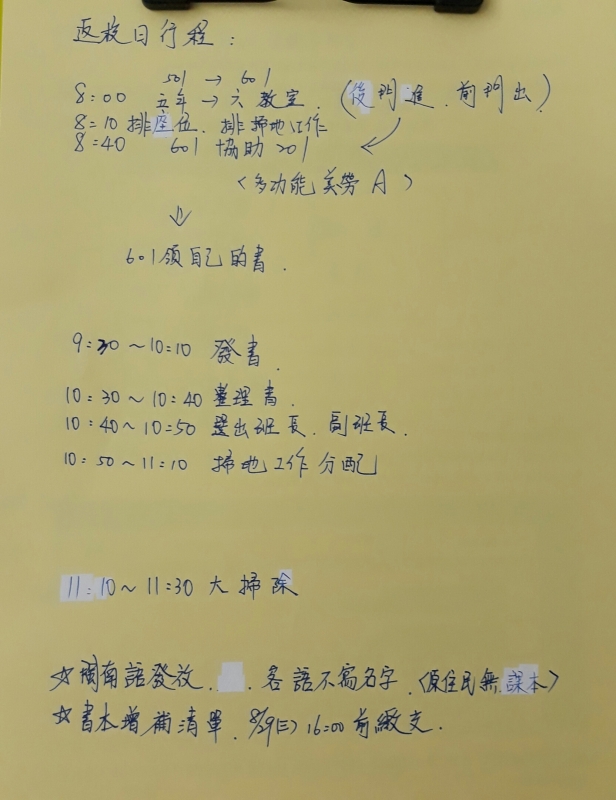 返校日行程：
501 → 601
8:00 五年 → 六教室. (後門進, 前門出)
8:10 排座位, 排掃地工作
8:40 601 協助 201
<多功能美勞A>
↓
601領自己的書.
9:30～10:10 發書.
10:30～10:40 整理書.
10:40～10:50 選出班長. 副班長.
10:50～11:10 掃地工作分配
11:10～11:30 大掃除
☆閩南語發放. 客語不寫名字. <原住民無課本>
☆書本增補清單, 8/29(三) 16:00前繳交.